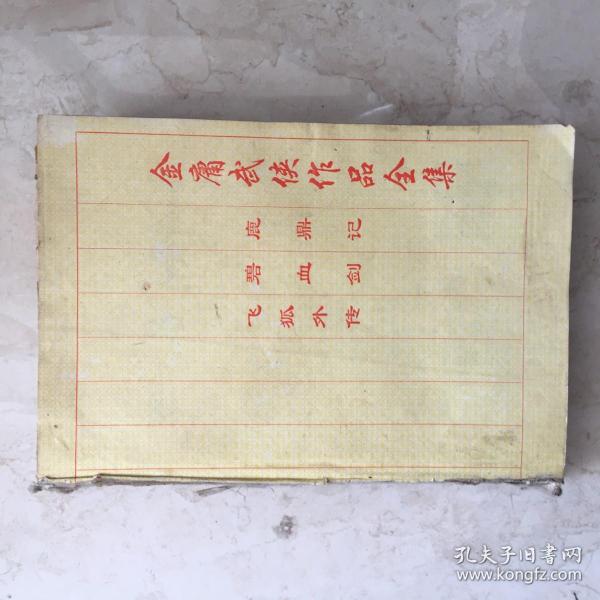 金庸武侠作品全集
鹿鼎记
碧血剑
飞狐外传
孔夫子旧书网
www.kongfz.com